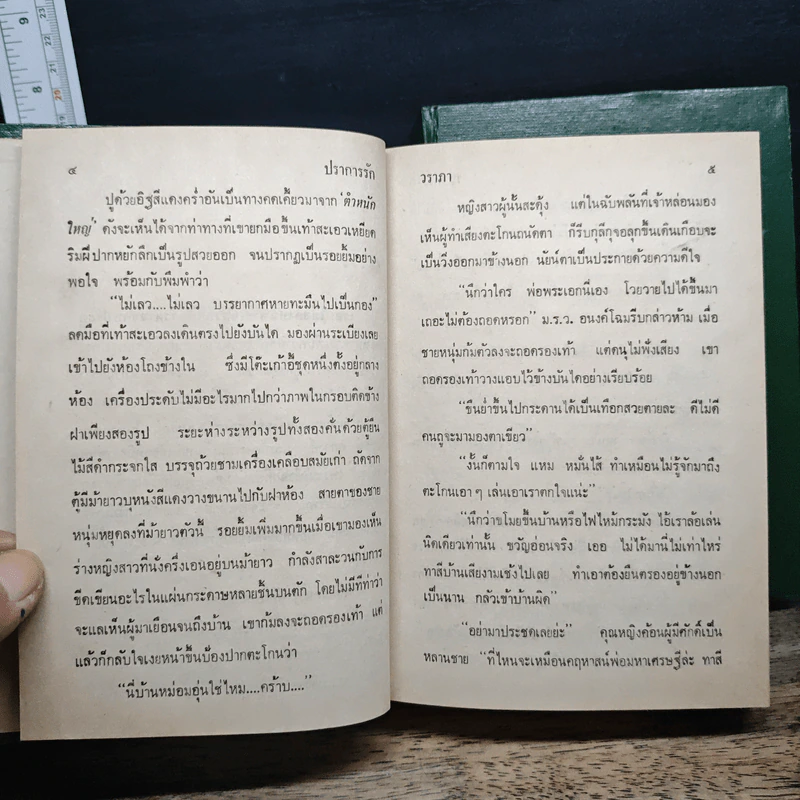 ๔ ปราการรัก
ปูด้วยอิฐสีแดงคร่ำอันเป็นทางคดเคี้ยวมาจาก ‘ตำหนัก
ใหญ่’ ดังจะเห็นได้จากท่าทางที่เขายกมือขึ้นเท้าสะเอวเหยียด
ริมฝีปากหยักลึกเป็นรูปสวยออก จนปรากฏเป็นรอยยิ้มอย่าง
พอใจ พร้อมกับพึมพำว่า
“ไม่เลว....ไม่เลว บรรยากาศหายทะมึนไปเป็นกอง”
ลดมือที่เท้าสะเอวลงเดินตรงไปยังบันได มองผ่านระเบียงเลย
เข้าไปยังห้องโถงข้างใน ซึ่งมีโต๊ะเก้าอี้ชุดหนึ่งตั้งอยู่กลาง
ห้อง เครื่องประดับไม่มีอะไรมากไปกว่าภาพในกรอบติดข้าง
ฝาเพียงสองรูป ระยะห่างระหว่างรูปทั้งสองคั่นด้วยตู้ยืน
ไม้สีดำกระจกใส บรรจุถ้วยชามเครื่องเคลือบสมัยเก่า ถัดจาก
ตู้มีม้ายาวบุหนังสีแดงวางขนานไปกับฝาห้อง สายตาของชาย
หนุ่มหยุดลงที่ม้ายาวตัวนี้ รอยยิ้มเพิ่มมากขึ้นเมื่อเขามองเห็น
ร่างหญิงสาวที่นั่งครึ่งเอนอยู่บนม้ายาว กำลังสาละวนกับการ
ขีดเขียนอะไรในแผ่นกระดาษหลายชั้นบนตัก โดยไม่มีทีท่าว่า
จะแลเห็นผู้มาเยือนจนถึงบ้าน เขาก้มลงจะถอดรองเท้า แต่
แล้วก็กลับใจเงยหน้าขึ้นป้องปากตะโกนว่า
“นี่บ้านหม่อมอุ่นใช่ไหม....คร้าบ....”
วราภา ๕
หญิงสาวผู้นั้นสะดุ้ง แต่ในฉับพลันที่เจ้าหล่อนมอง
เห็นผู้ทำเสียงตะโกนถนัดตา ก็รีบกุลีกุจอลุกขึ้นเดินเกือบจะ
เป็นวิ่งออกมาข้างนอก นัยน์ตาเป็นประกายด้วยความดีใจ
“นึกว่าใคร พ่อพระเอกนี่เอง โวยวายไปได้ขึ้นมา
เถอะไม่ต้องถอดหรอก” ม.ร.ว. อนงค์โฉมรีบกล่าวห้าม เมื่อ
ชายหนุ่มก้มตัวลงจะถอดรองเท้า แต่ดนุไม่ฟังเสียง เขา
ถอดรองเท้าวางแอบไว้ข้างบันไดอย่างเรียบร้อย
“ขืนย่ำขึ้นไปกระดานได้เป็นเทือกสวยตายละ ดีไม่ดี
คนถูจะมามองตาเขียว”
“งั้นก็ตามใจ แหม หมั่นไส้ ทำเหมือนไม่รู้จักมาถึง
ตะโกนเอา ๆ เล่นเอาเราตกใจแน่ะ”
“นึกว่าขโมยขึ้นบ้านหรือไฟไหม้กระมัง ไอ้เราล้อเล่น
นิดเดียวเท่านั้น ขวัญอ่อนจริง เออ ไม่ได้มานี่ไม่เท่าไหร่
ทาสีบ้านเสียงามเช้งไปเลย ทำเอาต้องยืนตรองอยู่ข้างนอก
เป็นนาน กลัวเข้าบ้านผิด”
“อย่ามาประชดเลยย่ะ” คุณหญิงค้อนผู้มีศักดิ์เป็น
หลานชาย “ที่ไหนจะเหมือนคฤหาสน์พ่อมหาเศรษฐีล่ะ ทาสี
9
8
23
22
21
20